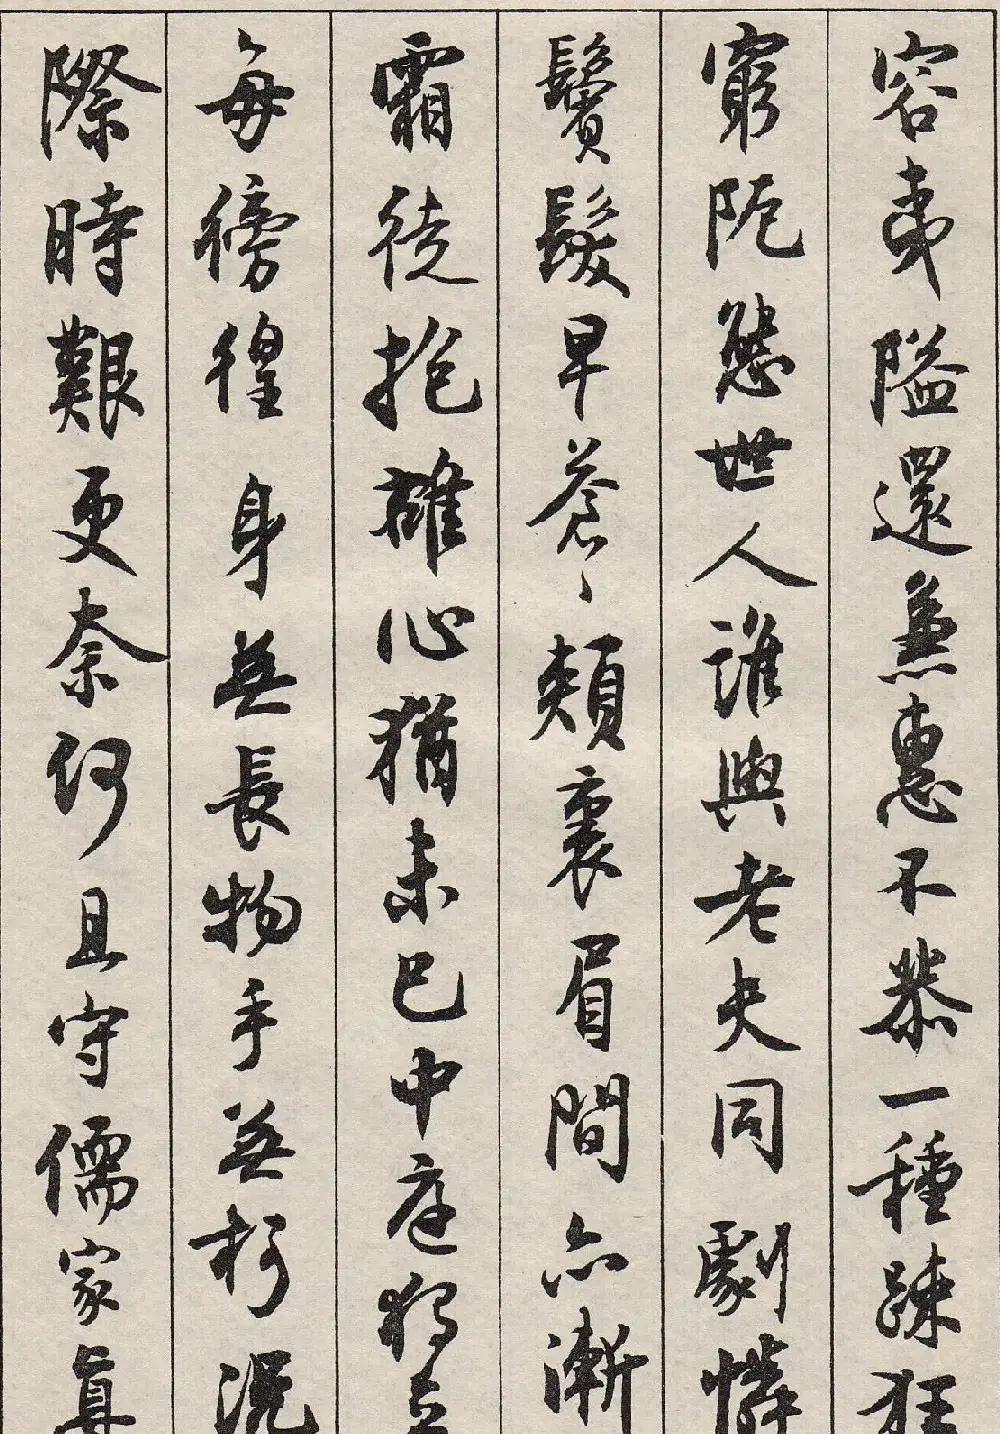 容夷隘還兼惠不恭一種疎狂
窮阸態世人誰與老夫同劇憐
鬢髮早蒼〻頰裏眉間亦漸
霜徒抱雄心猶未已中庭獨立
每徬徨身無長物手無柯況
際時艱更奈何且守儒家真